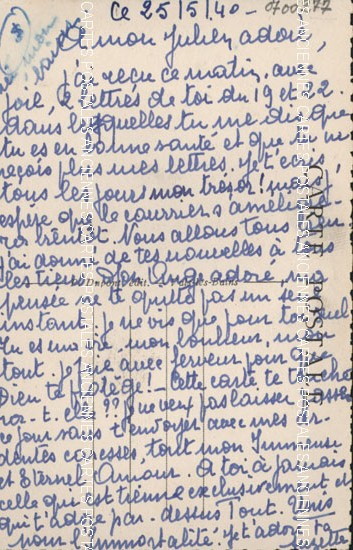 Ce 25/5/40 -
0700177
mon Julien adoré,
J'ai reçu ce matin, avec
joie, 2 lettres de toi du 19 et 22.
dans lesquelles tu me dis que
tu es en bonne santé et que tu ne
reçois pas mes lettres. Je t'écris
tous les jours mon trésor! mais j'
espère que le courrier s'amélio-
rera bientôt. Nous allons tous bien
j'ai donné de tes nouvelles à tous
les tiens. Mon Ange adoré, ma
pensée ne te quitte pas un seul
instant. je ne vis que pour toi, quel
Tu es ma vie, mon bonheur, mon
tout. je prie avec ferveur pour que
Dieu te protège! - Cette carte te touche-
ra-t-elle ?? je ne veux pas laisser passer
ce jour sans t'envoyer avec mes ar-
dentes caresses, tout mon Immense
et Eternel Amour. A toi à jamais
celle qui est tienne exclusivement et
qui t'adore par-dessus Tout. Unis
pour l'immortalité. Je t'adore ta
CARTE POSTALE
Dupont édit.
les-Bains
CARTES POSTALES ANCIENNES